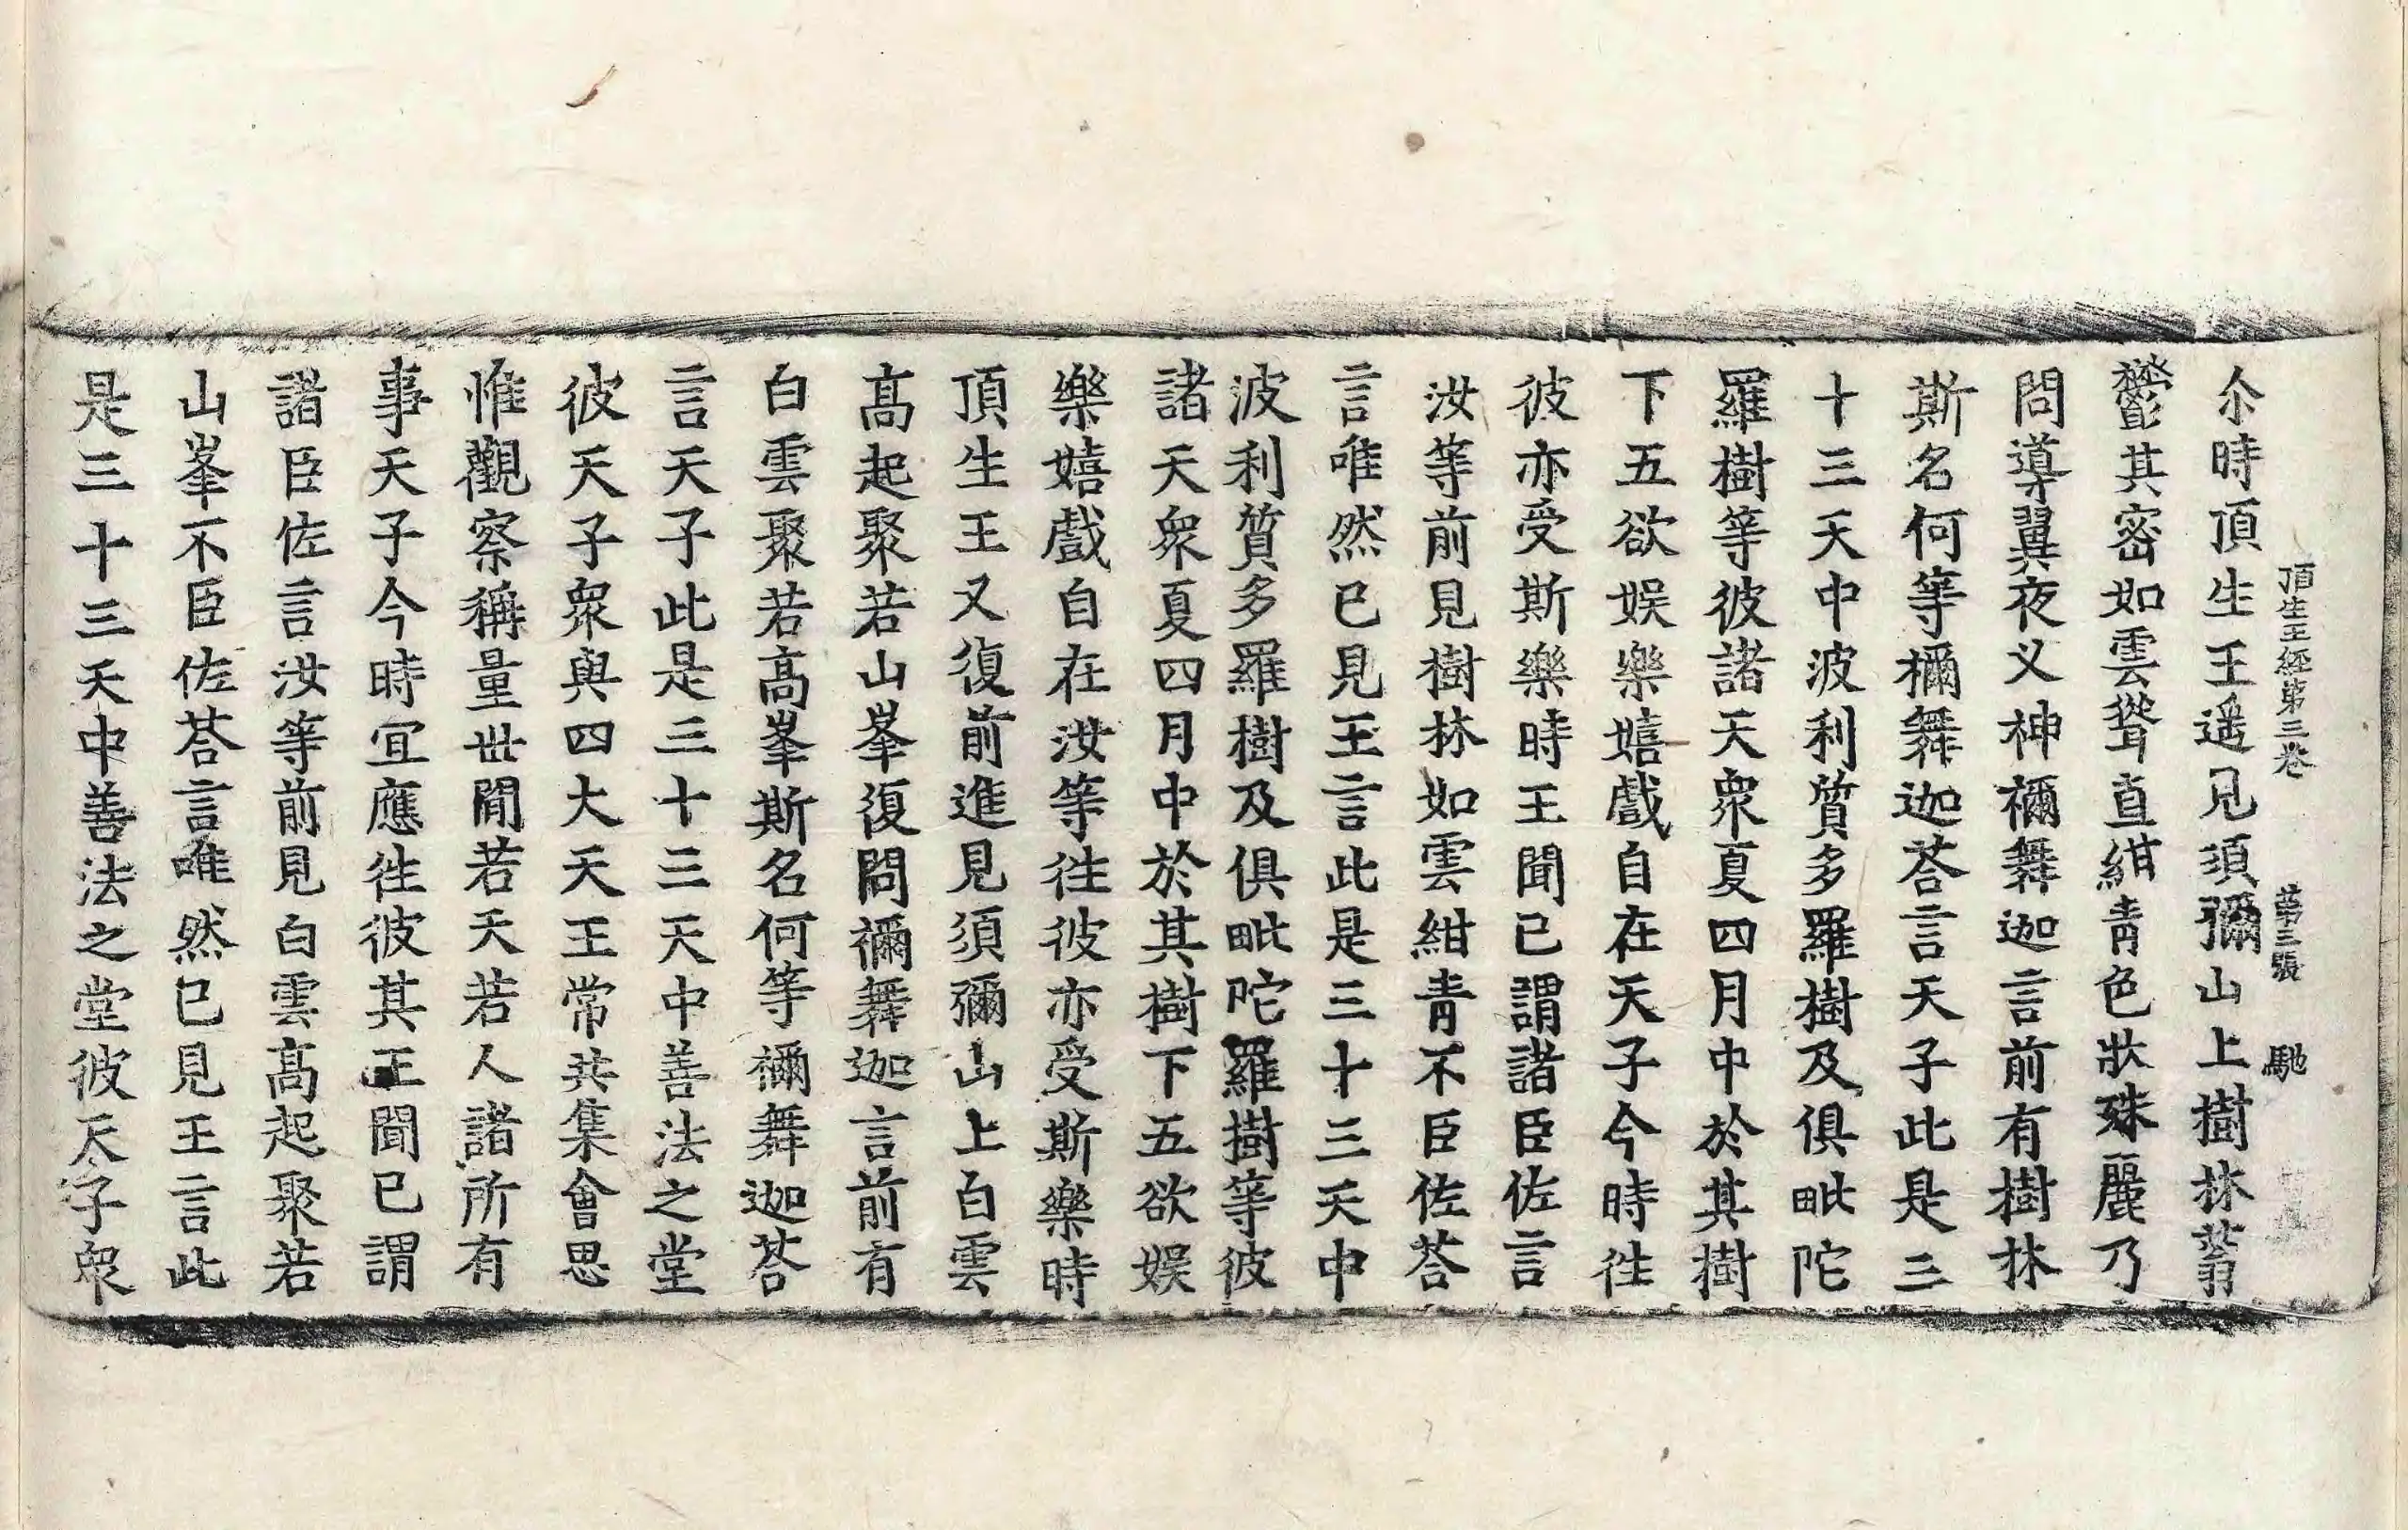 頂生王經第三卷 第三張 馳
尒時頂生王遥見須彌山上樹林蓊
欝其密如雲聳直紺青色狀殊麗乃
問導翼夜义神禰舞迦言前有樹林
斯名何等禰舞迦荅言天子此是三
十三天中波利質多羅樹及俱毗陀
羅樹等彼諸天衆夏四月中於其樹
下五欲娱樂嬉戲自在天子今時徃
彼亦受斯樂時王聞已謂諸臣佐言
汝等前見樹林如雲紺青不臣佐荅
言唯然已見王言此是三十三天中
波利質多羅樹及俱毗陀羅樹等彼
諸天衆夏四月中於其樹下五欲娱
樂嬉戲自在汝等徃彼亦受斯樂時
頂生王又復前進見須彌山上白雲
髙起聚若山峯復問禰舞迦言前有
白雲聚若髙峯斯名何等禰舞迦荅
言天子此是三十三天中善法之堂
彼天子衆與四大天王常共集會思
惟觀察稱量世間若天若人諸所有
事天子今時宜應徃彼其王聞已謂
諸臣佐言汝等前見白雲髙起聚若
山峯不臣佐荅言唯然已見王言此
是三十三天中善法之堂彼天子衆